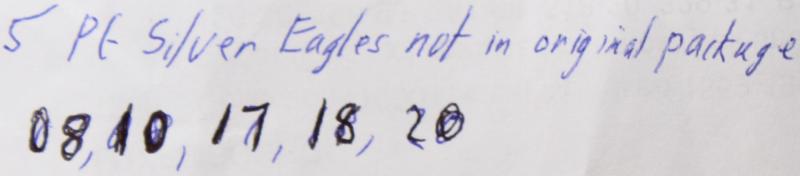 5 Pf Silver Eagles not in original package
08, 10, 17, 18, 20